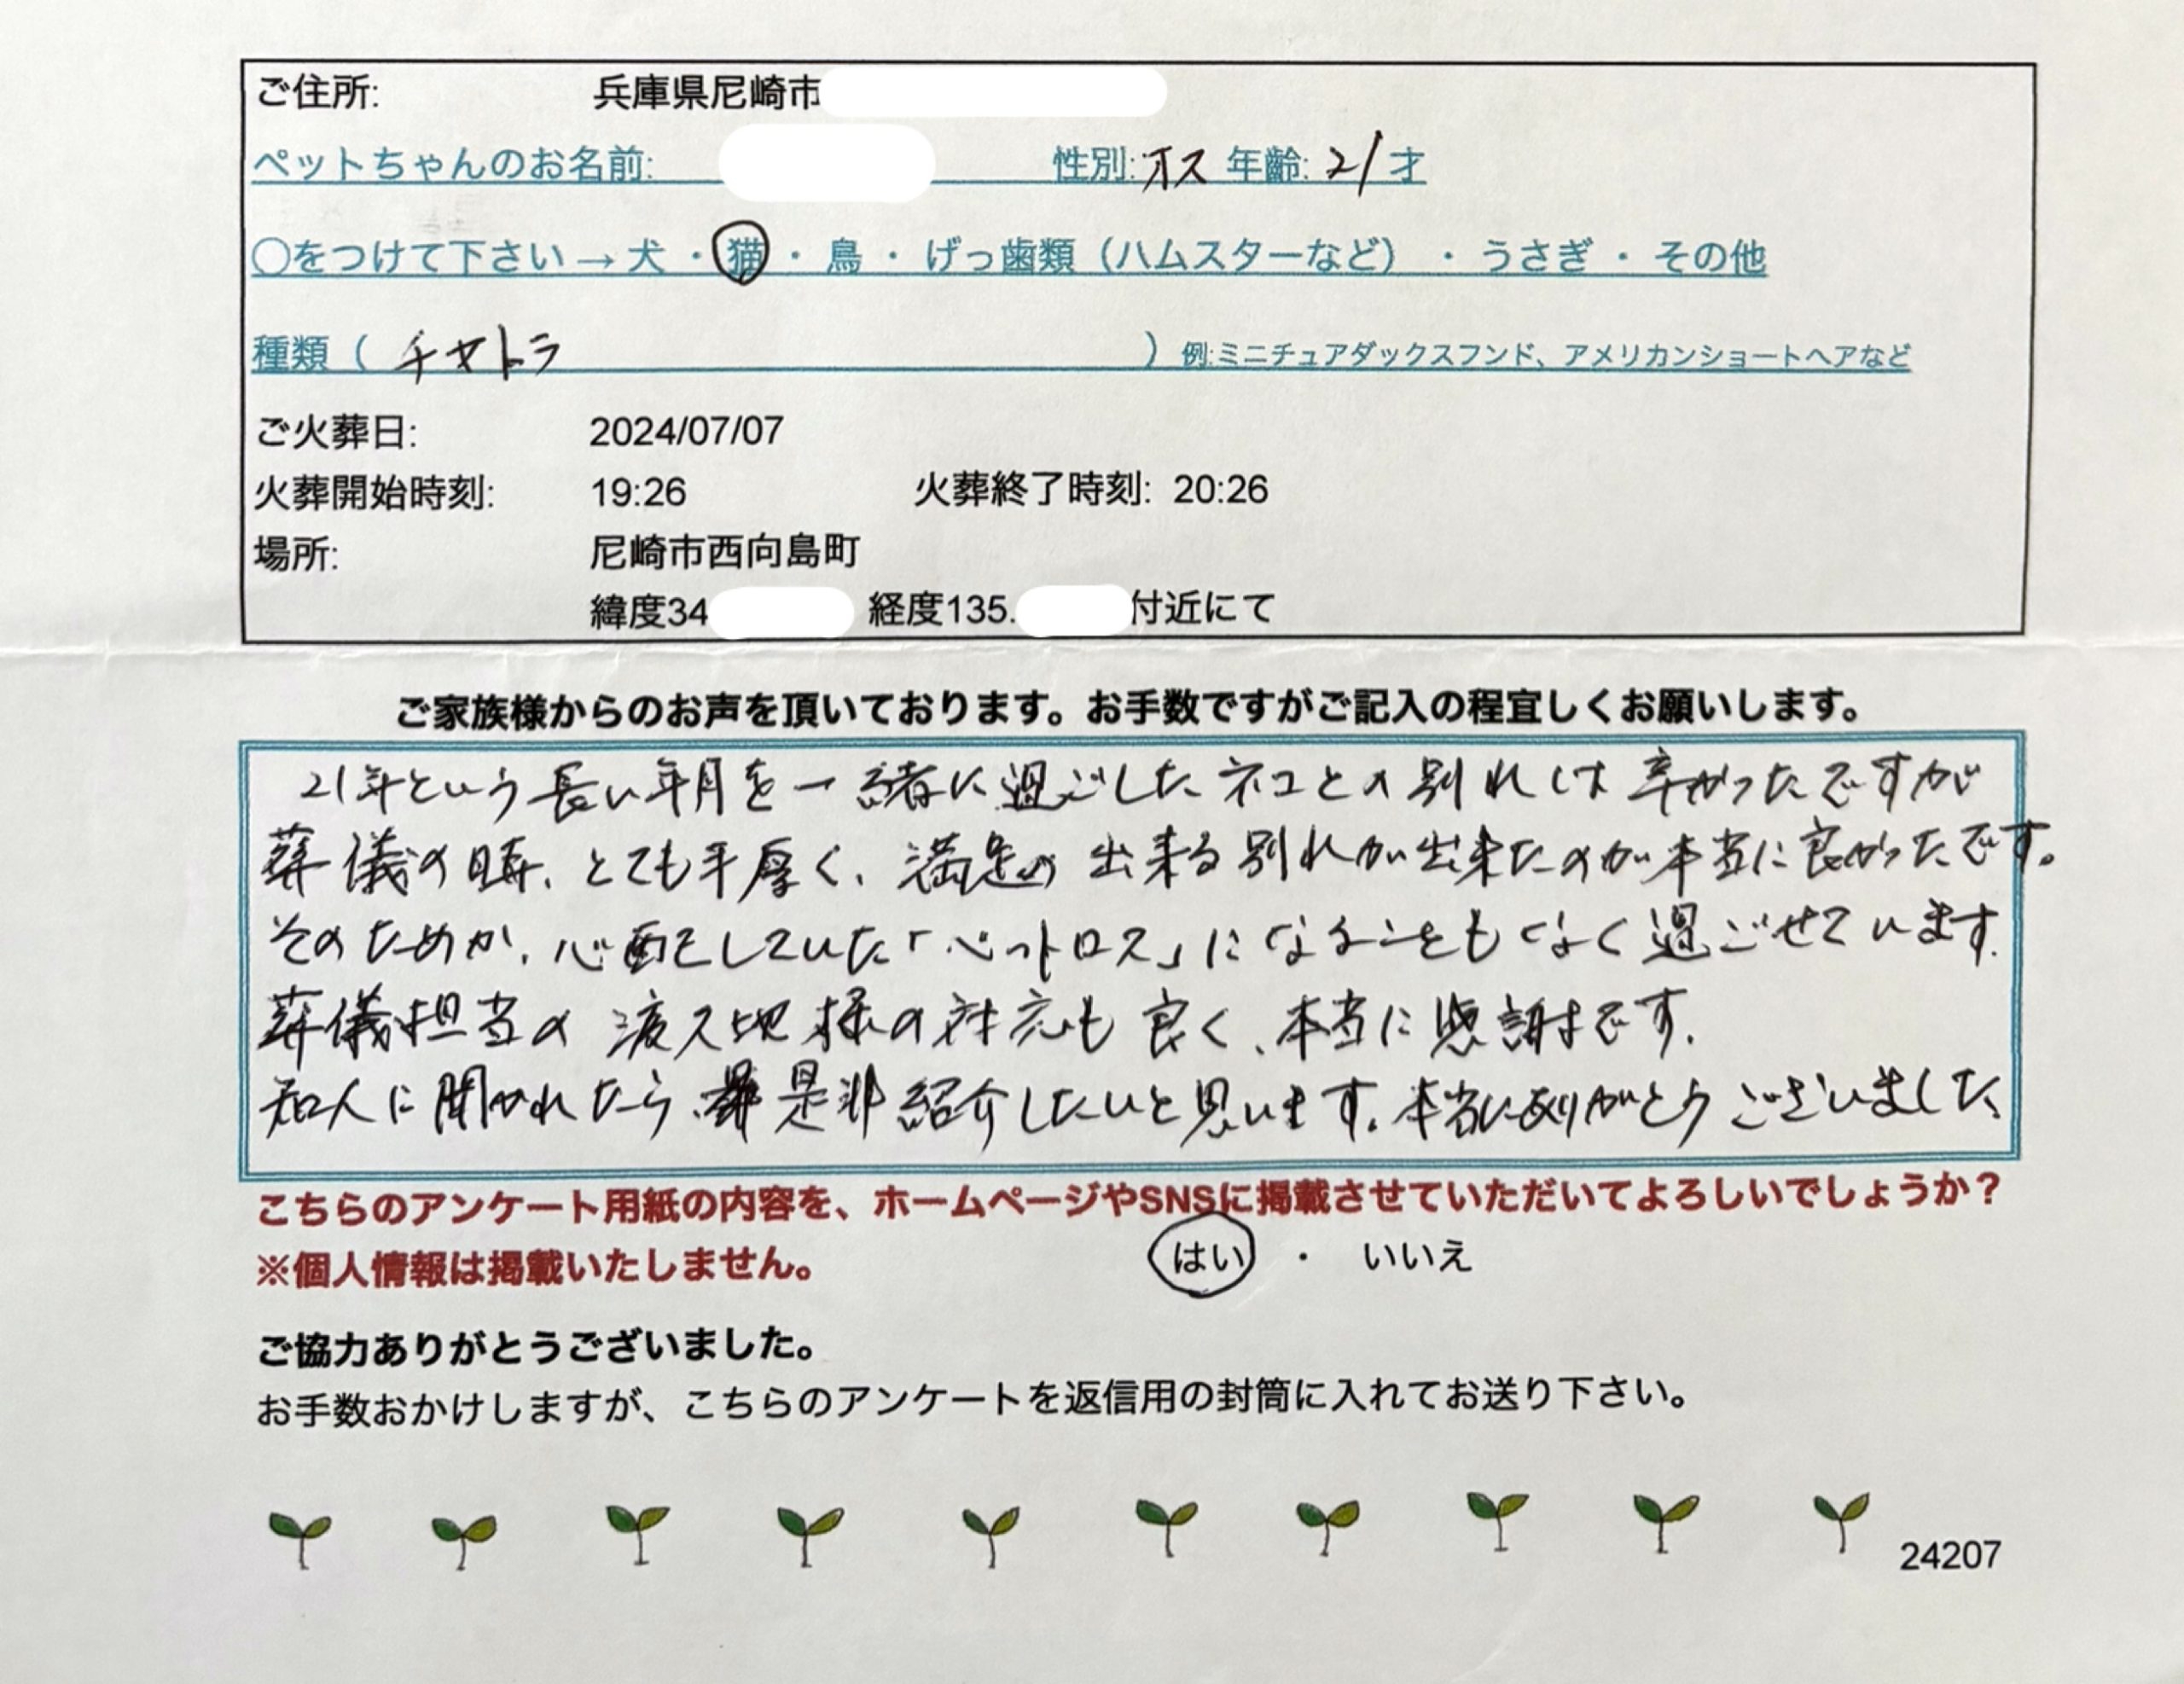 ご住所: 兵庫県尼崎市
ペットちゃんのお名前: 性別:オス 年齢:21才
○をつけて下さい→犬・猫・鳥・げっ歯類(ハムスターなど)・うさぎ・その他
種類(チャトラ)例:ミニチュアダックスフンド、アメリカンショートヘアなど
ご火葬日: 2024/07/07
火葬開始時刻: 19:26 火葬終了時刻: 20:26
場所: 尼崎市西向島町
緯度34 経度135. 付近にて
ご家族様からのお声を頂いております。お手数ですがご記入の程宜しくお願いします。
21年という長い年月を一緒に過ごしたネコとの別れは辛かったですが
葬儀の時、とても手厚く、満足の出来る別れが出来たのが本当に良かったです。
そのためか、心配をしていた「ペットロス」になることもなく過ごせています。
葬儀担当の渡久地様の対応も良く、本当に感謝です。
知人に聞かれたら、是非紹介したいと思います。本当にありがとうございました
こちらのアンケート用紙の内容を、ホームページやSNSに掲載させていただいてよろしいでしょうか?
※個人情報は掲載いたしません。 はい ・ いいえ
ご協力ありがとうございました。
お手数おかけしますが、こちらのアンケートを返信用の封筒に入れてお送り下さい。
24207